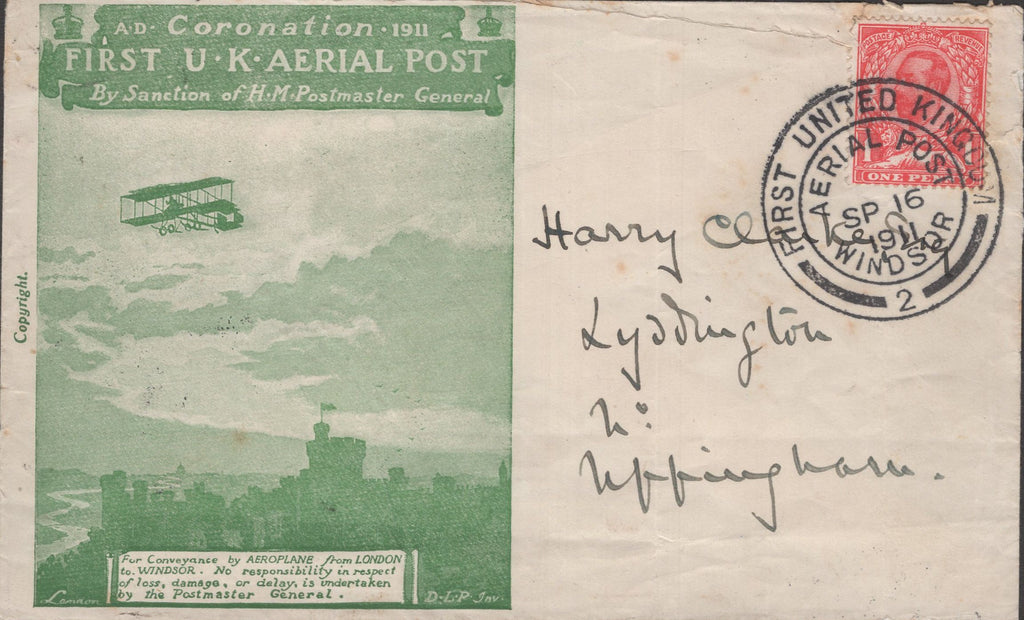 A·D· Coronation ·1911
FIRST U·K·AERIAL POST
By Sanction of H·M·Postmaster General
Copyright.
For Conveyance by AEROPLANE from LONDON
to WINDSOR. No responsibility in respect
of loss, damage, or delay, is undertaken
by the Postmaster General.
London
D·L·P·Inv·
POSTAGE
REVENUE
1
ONE PENNY
FIRST UNITED KINGDOM
AERIAL POST
SP 16
1911
WINDSOR
2
Harry
Lyddington
Nº
Uppingham.